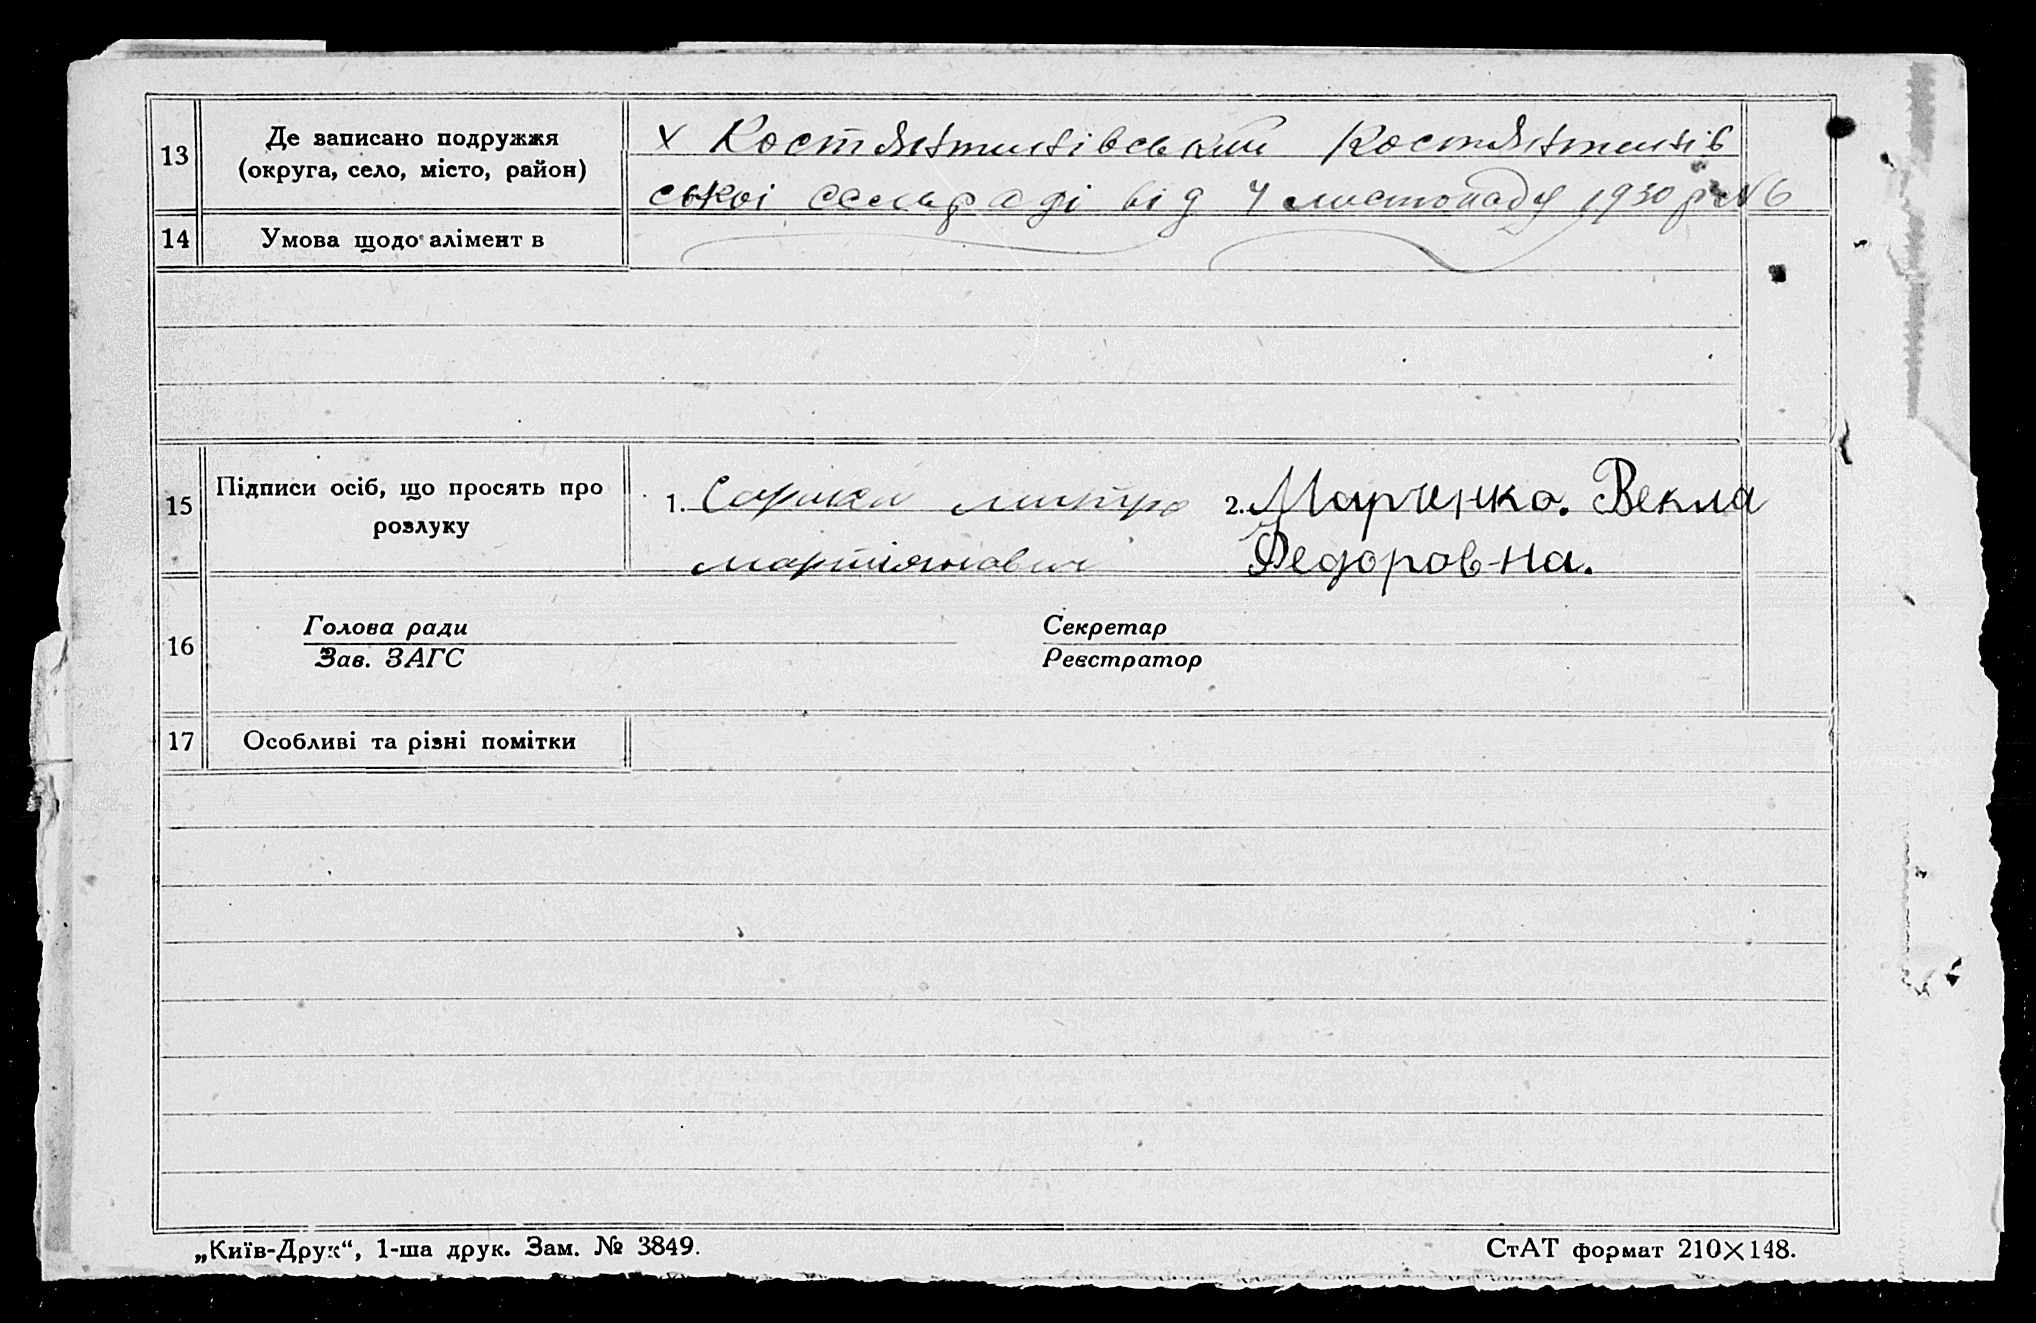 13 Де записано подружжя
(округа, село, місто, район)
Х Костянтинівський Костянтинів
ської сельраді від 4 листопаду 1930 р № 6
14 Умова щодо алімент в
15 Підписи осіб, що просять про
розлуку
1. митро 2. Марченко. Векла
мартинович Федоровна.
16 Голова ради Секретар
Зав. ЗАГС Реєстратор
17 Особливі та різні помітки
„Київ-Друк“, 1-ша друк. Зам. № 3849. СтАТ формат 210×148.